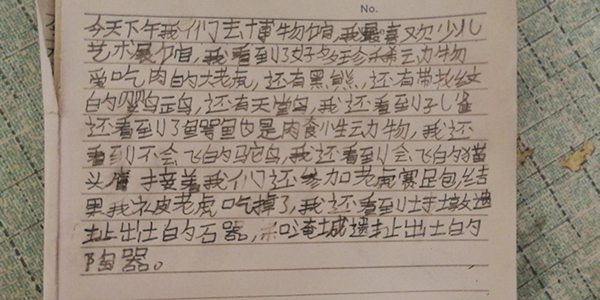 No.
今天下午我们去博物馆,我最喜欢少儿
艺术展馆,我看到了好多珍稀动物
爱吃肉的大老虎,还有黑熊,还有带花纹
的鹦鹉,还有天堂鸟,我还看到了孔雀
还看到了鳄鱼也是肉食性动物,我还
看到不会飞的鸵鸟,我还看到会飞的猫
头鹰 接着我们还参加老虎赛跑,结
果我被老虎吃掉了,我还看到土墩遗
址出土的石器,和淹城遗址出土的
陶器。